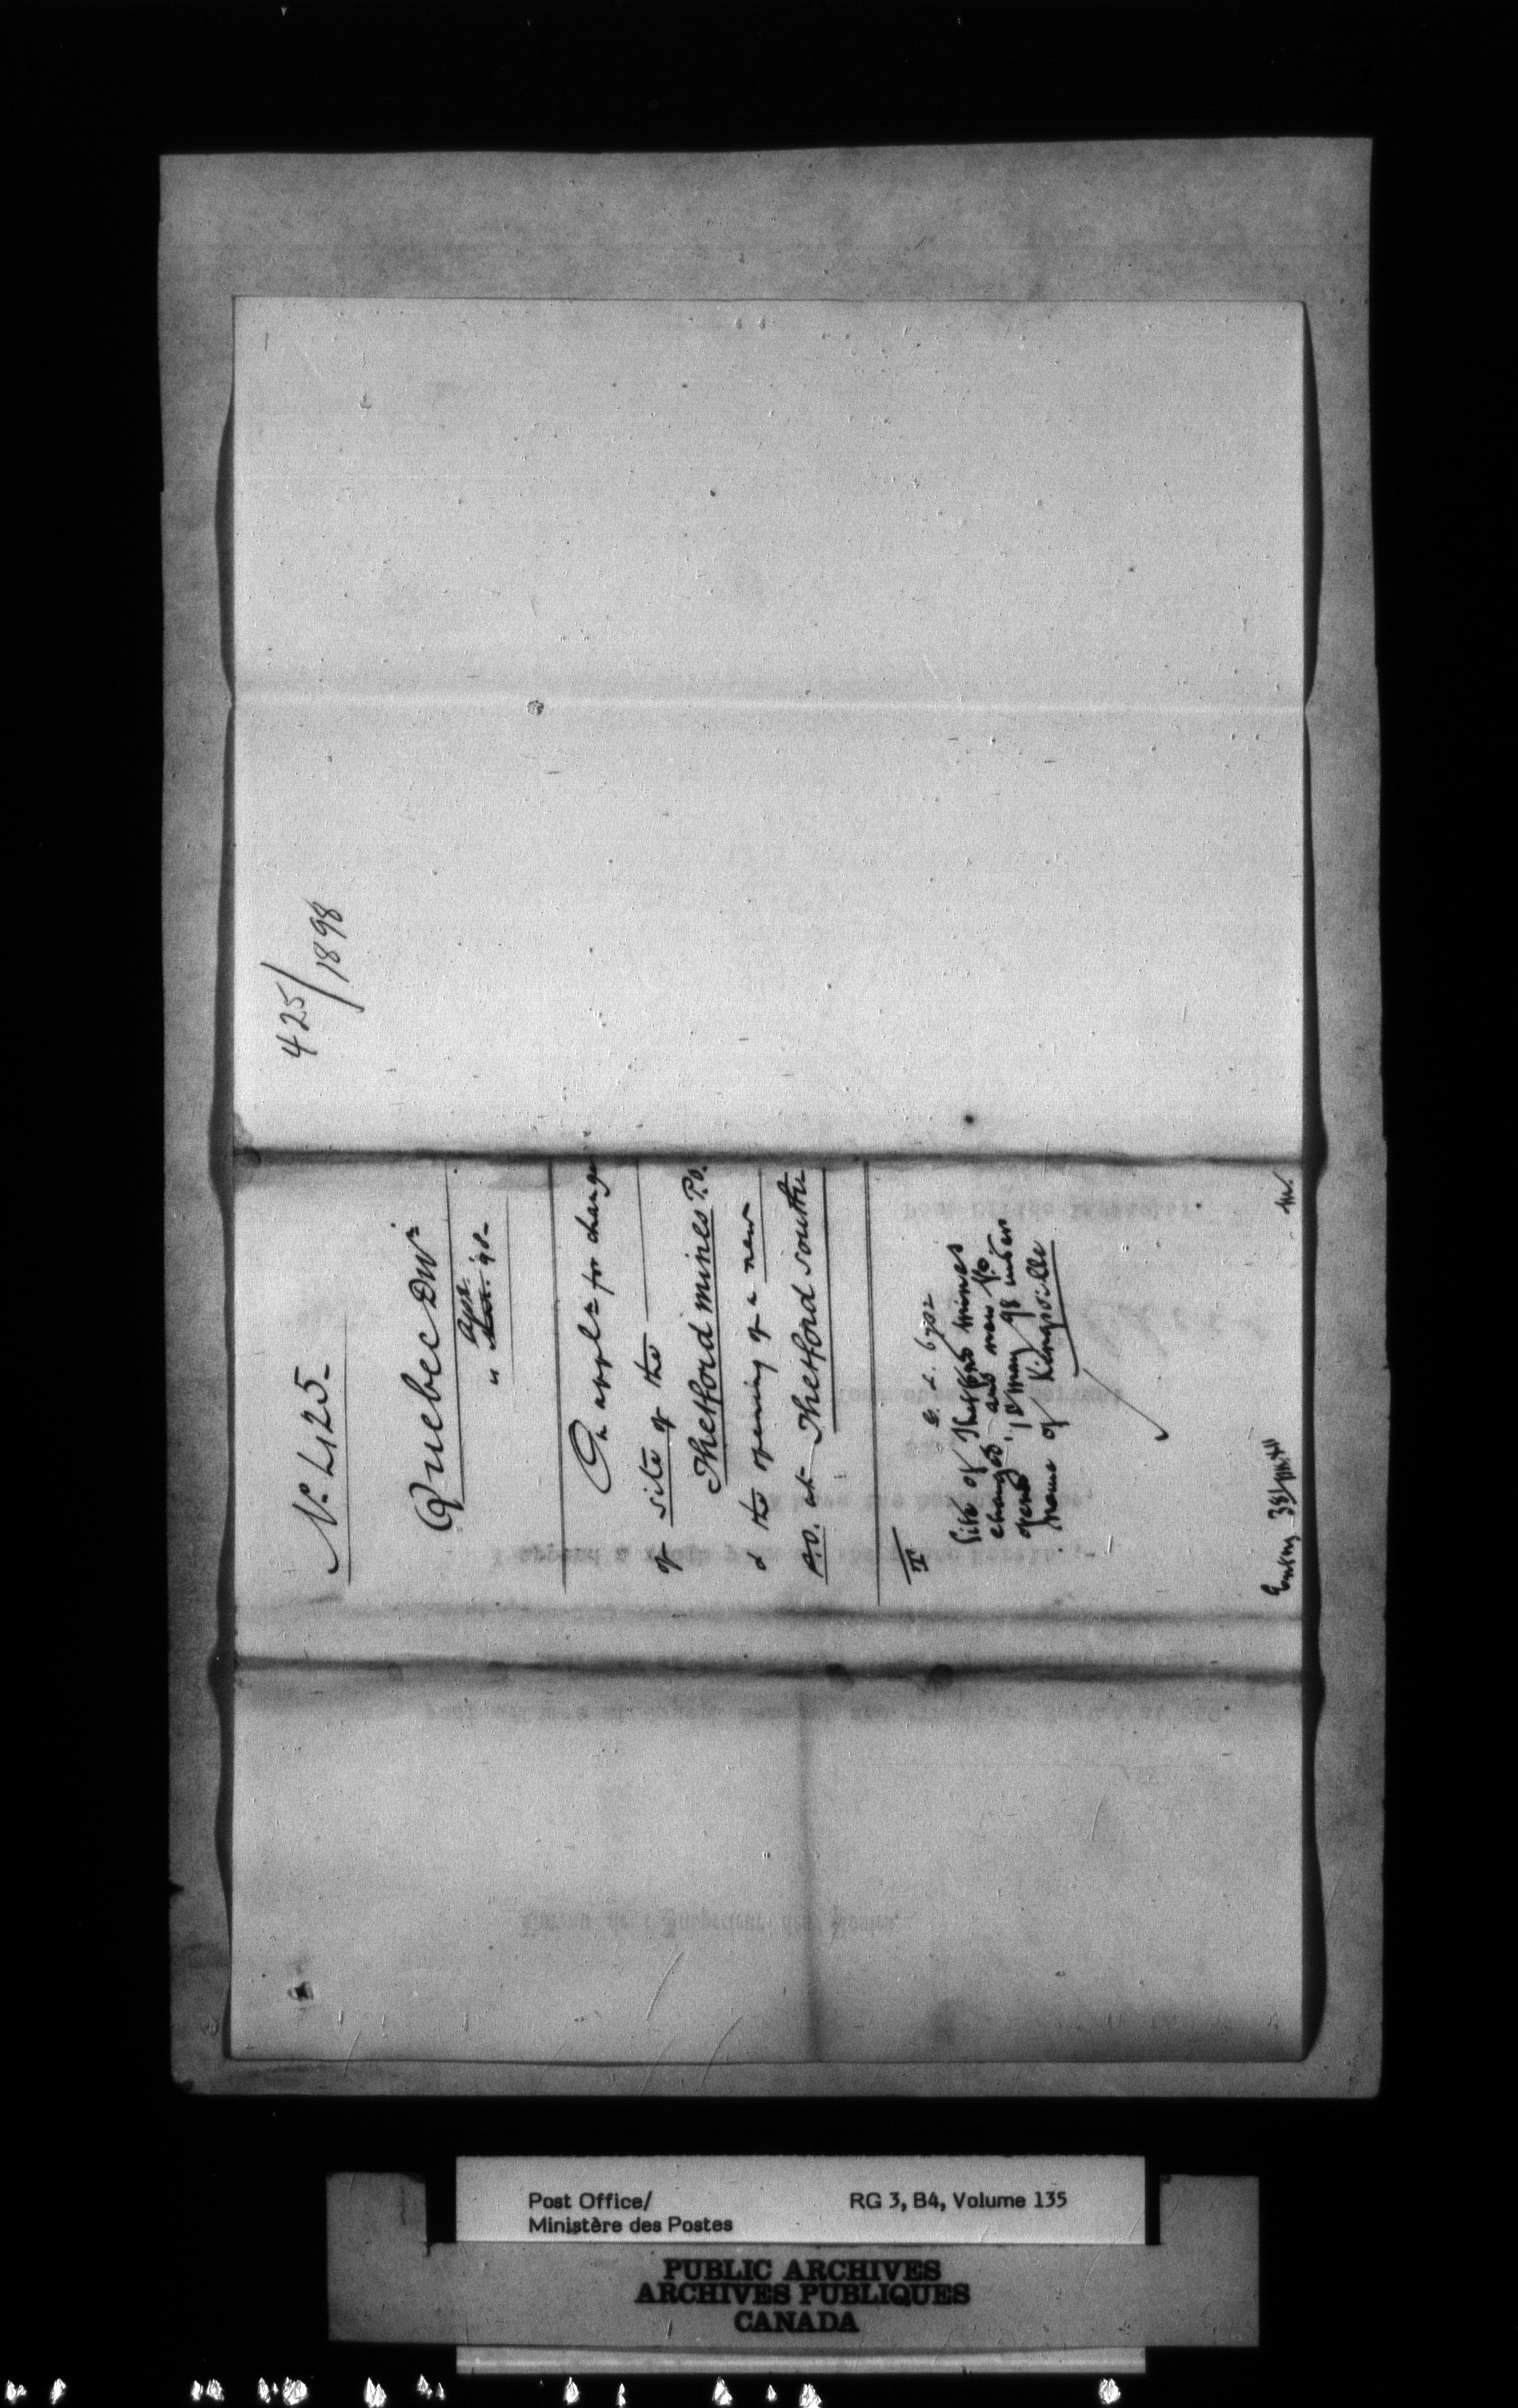 425/1898
No. 425
Quebec Dn.
Apr.
" '98
On appln for change
of site of the
Thetford Mines P.O.
& the opening of a new
P.O. at Thetford South
Site of Thetford Mines
changed, and new P.O.
opened 1 May 98 under
name of Kingsville
Post Office/
Ministère des Postes
RG 3, B4, Volume 135
PUBLIC ARCHIVES
ARCHIVES PUBLIQUES
CANADA